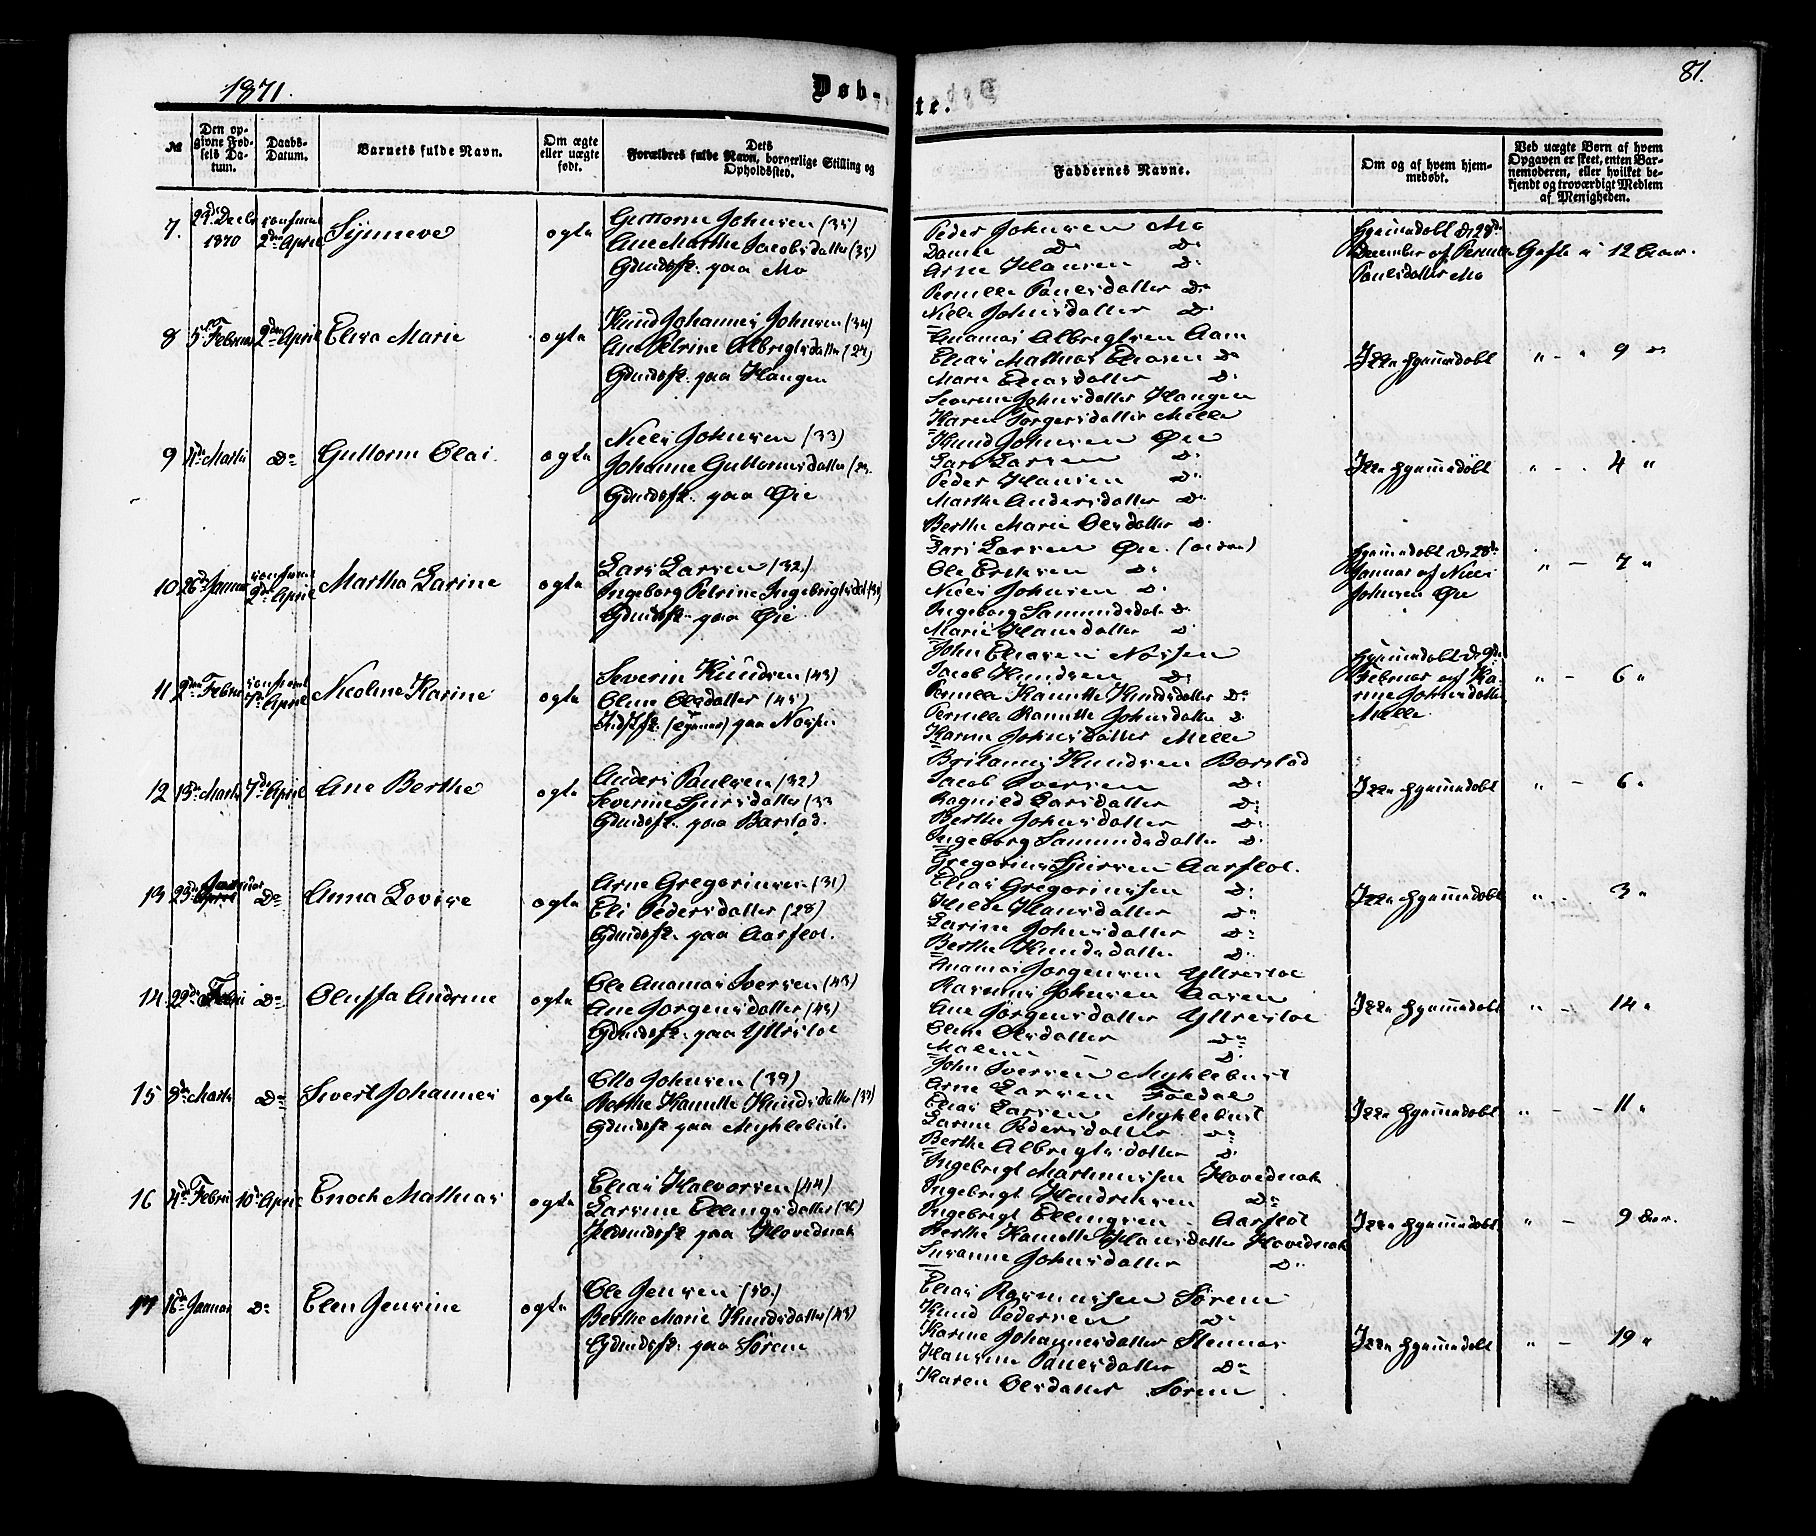 1871.
Døb-
te.
81.
№
Den op-
givne Fød-
sels Da-
tum.
Daabs-
Datum.
Barnets fulde Navn.
Om ægte
eller uægte
født.
Dets
Forældres fulde Navn, borgerlige Stilling og
Opholdssted.
Faddernes Navne.
Om og af hvem hjem-
medøbt.
Ved uægte Børn af hvem
Opgaven er skeet, enten Bar-
nemoderen, eller hvilket be-
kjendt og troværdigt Medlem
af Menigheden.
7.
1870
2den April
Synneve
ægte
Guttorm Johnsen (35)
Ane Marthe Jacobsdatter (35)
Gdmdsfk. paa Mo
Peder Johnsen Mo
Danne Do Do
Arne Hansen Do
Pernille Paulsdatter Do
Niels Johnsdatter Do
hjemmedøbt d. 28de
December af Pernille
Paulsdatter Mo
Gift i 12 Aar.
8
5te Februar
2den April
Elisa Marie
ægte
Knud Johannes Johnsen (34)
Ane Petrine Albregtsdatter (27)
Gdmdsfk. paa Haugen
Ananias Albregtsen Aam
Elias Mathias Eliasen Do
Marie Eliasdatter Do
Severine Johnsdatter Haugen
Karen Torgersdatter Melle
Ikke hjemmedøbt
" - " 9 "
9
4de Marts
Do
Guttorm Olai
ægte
Niels Johnsen (33)
Johanne Guttormsdatter (29.
Gdmdsfk. paa Øie
Knud Johnsen Øie
Lars Larsen Do
Peder Hansen Do
Marthe Andersdatter Do
Berthe Marie Olsdatter Do
Ikke hjemmedøbt
" - . 4 "
10
26de Januar
2den April
Martha Larine
ægte
Lars Larsen (32)
Ingeborg Petrine Ingebrigtsdat
Gdmdsfk. paa Øie
Lars Larsen Øie
Ole Eriksen Do
Niels Johnsen Do
Ingeborg Samundsdatr. Do
Marie Hansdatter Do
hjemmedøbt d. 28de
Januar af Niels
Johnsen Øie
" - 7 "
11
2den Febr
7de April
Nicoline Karine
ægte
Severin Knudsen (43)
Oline Olsdatter (45)
paa Nossen
John Eliasen Nossen
Jacob Knudsen Do
Pernille Kanutte Knudsdatter Do
Pernille Kanutte Johnsdatter Do
Karine Johnsdatter Melle
hjemmedøbt d. 9de
Februar af Ka-
rine Johnsdatter
Melle.
" - 6 "
12
13de Marts
7de April
Ane Berthe
ægte
Anders Paulsen (32)
Severine Sjursdatter (33
Gdmdsfk. paa Barstad.
Britanus Knudsen Barstad
Jacob Iversen Do
Ragnild Larsdatter Do
Berthe Johnsdatter Do
Ingeborg Samundsdatter Do
Ikke hjemmedøbt
" - 6 "
13
23de Januar
Do
Anna Lovise
ægte
Arne Gregoriussen (31)
Eli Pedersdatter (28)
Gdmdsfk. paa Aarflot.
Gregorius Sjursen Aarflot.
Elias Gregoriussen Do
Hilde Hansdatter Do
Larine Johnsdatter Do
Berthe Knudsdatter Do
Ikke hjemmedøbt
" - . 3 "
14
Do
Oluffa Andrine
ægte
Ole Ananias Iversen (43)
Ane Jørgensdatter (43)
Gdmdsfk. paa Yttrestøl
Ananias Jørgensen Yttrestøl
Rasmus Johnsen Aasen
Ane Jørgensdatter Yttrestøl
Oline Olsdatter Do
Malene Do
Ikke hjemmedøbt
" - 14 "
15
8de Marts
Do
Sivert Johannes
ægte
Otto Johnsen (39)
Berthe Kanutte Knudsdatter (37)
Gdmdsfk paa Myklebust.
John Iversen Myklebust
Arne Larsen Foldal
Elias Larsen Myklebust
Larine Pedersdatter Do
Berthe Albregtsdatter Do
Ikke hjemmedøbt
" - - 11 "
16
4de Febr
10de April
Enoch Mathias
ægte
Elias Halvorsen (44)
Larsine Ellingsdatter (36)
paa Hovednak
Ingebrigt Martinussen Hovednak
Ingebrigt Hendriksen Do
Ingebrigt Ellingsen Aarflot
Berthe Kanutte Hansdatter Hovednak
Susanne Johnsdatter Do
Ikke hjemmedøbt
" - 9 Aar.
17
16de Januar
Do
Elen Jensine
ægte
Ole Jensen (50.)
Berthe Marie Knudsdatter (43)
Gdmdsfk. paa Sørem
Elias Rasmussen Sørem
Knud Pedersen Do
Karine Johannesdatter Stennes
Hansine Paulsdatter Do
Karen Olsdatter Sørem
Ikke hjemmedøbt
" - 19 "